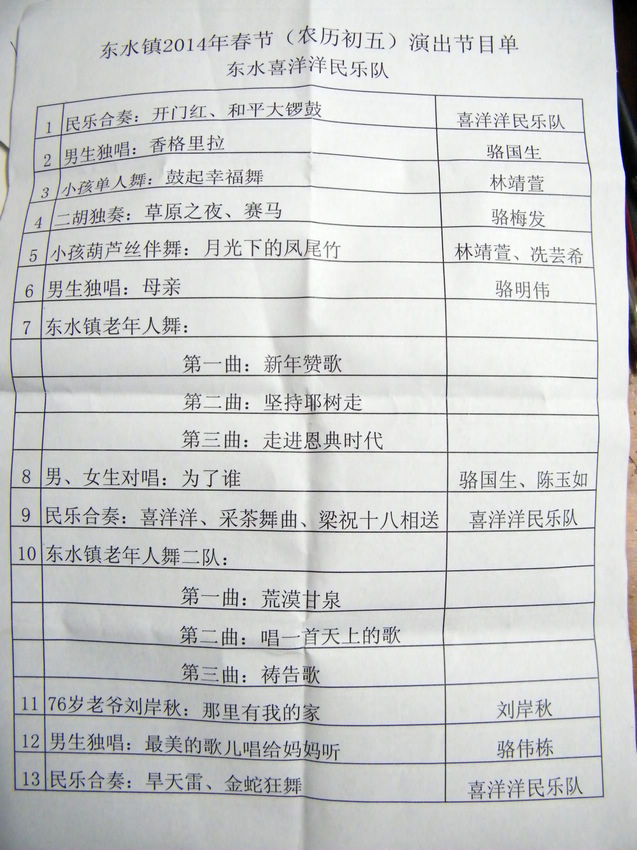 东水镇2014年春节（农历初五）演出节目单
东水喜洋洋民乐队
1 民乐合奏：开门红、和平大锣鼓 喜洋洋民乐队
2 男生独唱：香格里拉 骆国生
3 小孩单人舞：鼓起幸福舞 林靖萱
4 二胡独奏：草原之夜、赛马 骆梅发
5 小孩葫芦丝伴舞：月光下的凤尾竹 林靖萱、冼芸希
6 男生独唱：母亲 骆明伟
7 东水镇老年人舞：
第一曲：新年赞歌
第二曲：坚持耶树走
第三曲：走进恩典时代
8 男、女生对唱：为了谁 骆国生、陈玉如
9 民乐合奏：喜洋洋、采茶舞曲、梁祝十八相送 喜洋洋民乐队
10 东水镇老年人舞二队：
第一曲：荒漠甘泉
第二曲：唱一首天上的歌
第三曲：祷告歌
11 76岁老爷刘岸秋：那里有我的家 刘岸秋
12 男生独唱：最美的歌儿唱给妈妈听 骆伟栋
13 民乐合奏：旱天雷、金蛇狂舞 喜洋洋民乐队